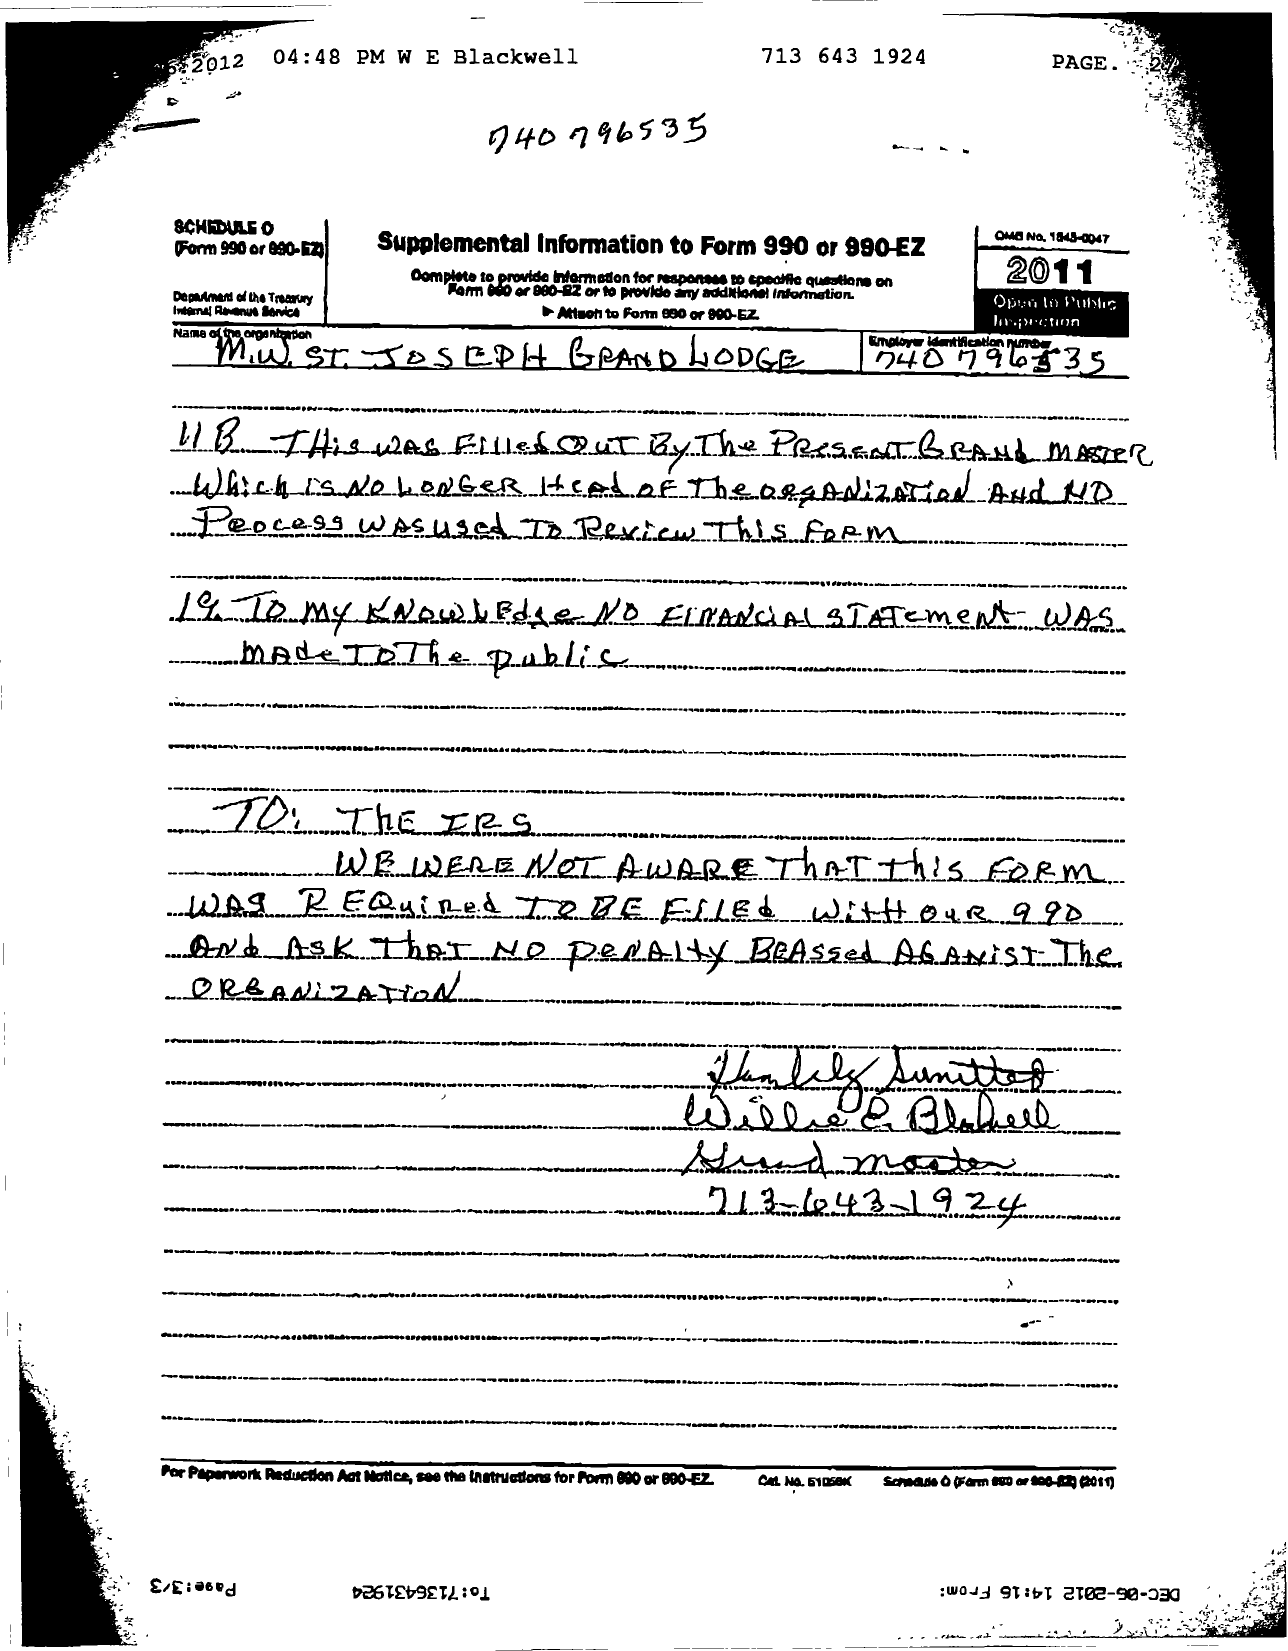 2012 04:48 PM W E Blackwell 713 643 1924 PAGE. 2/
740796535
SCHEDULE O
(Form 990 or 990-EZ)
Department of the Treasury
Internal Revenue Service
Supplemental Information to Form 990 or 990-EZ
Complete to provide information for responses to specific questions on
Form 990 or 990-EZ or to provide any additional information.
▶ Attach to Form 990 or 990-EZ.
OMB No. 1545-0047
2011
Open to Public
Inspection
Name of the organization
M.W. ST. JOSEPH GRAND LODGE
Employer identification number
740796535
11B THis WAS FIlled OUT By The PRESENT GRANd MASTER
Which IS NO LONGER Head OF The ORgANiZATION ANd NO
Process WAS Used TO Review This FORM
19 TO MY KNOWLEdge NO FINANCiAL STATemeNt WAS
MAde TO The public
TO: ThE IRS
WE WERE NOT AWARE ThAT this FORM
WAS REQuiRed TO BE FILEd WitH OUR 990
ANd ASK ThAT NO PeNAlty BE ASSed AGANIST The
ORGANiZATION
Humbly Sumitted
Willie E. Blackwell
Grand Master
713-643-1924
For Paperwork Reduction Act Notice, see the Instructions for Form 990 or 990-EZ. Cat. No. 51056K Schedule O (Form 990 or 990-EZ) (2011)
DEC-06-2012 14:16 From: To:7136431924 Page:3/3